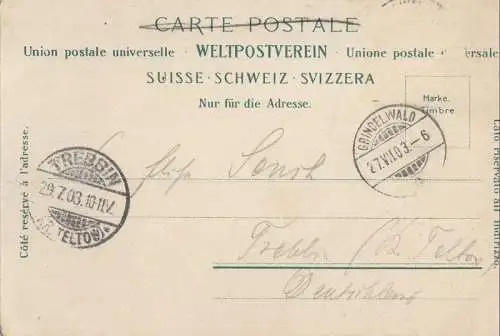 CARTE POSTALE
Union postale universelle · WELTPOSTVEREIN · Unione postale ersale
SUISSE · SCHWEIZ · SVIZZERA
Nur für die Adresse.
Marke.
Timbre
GRINDELWALD
27.VII.03.–6
Côté réservé à l'adresse.
TREBBIN
29.7.03.10-11V.
TELTOW
Trebbin Teltow
Deutschland